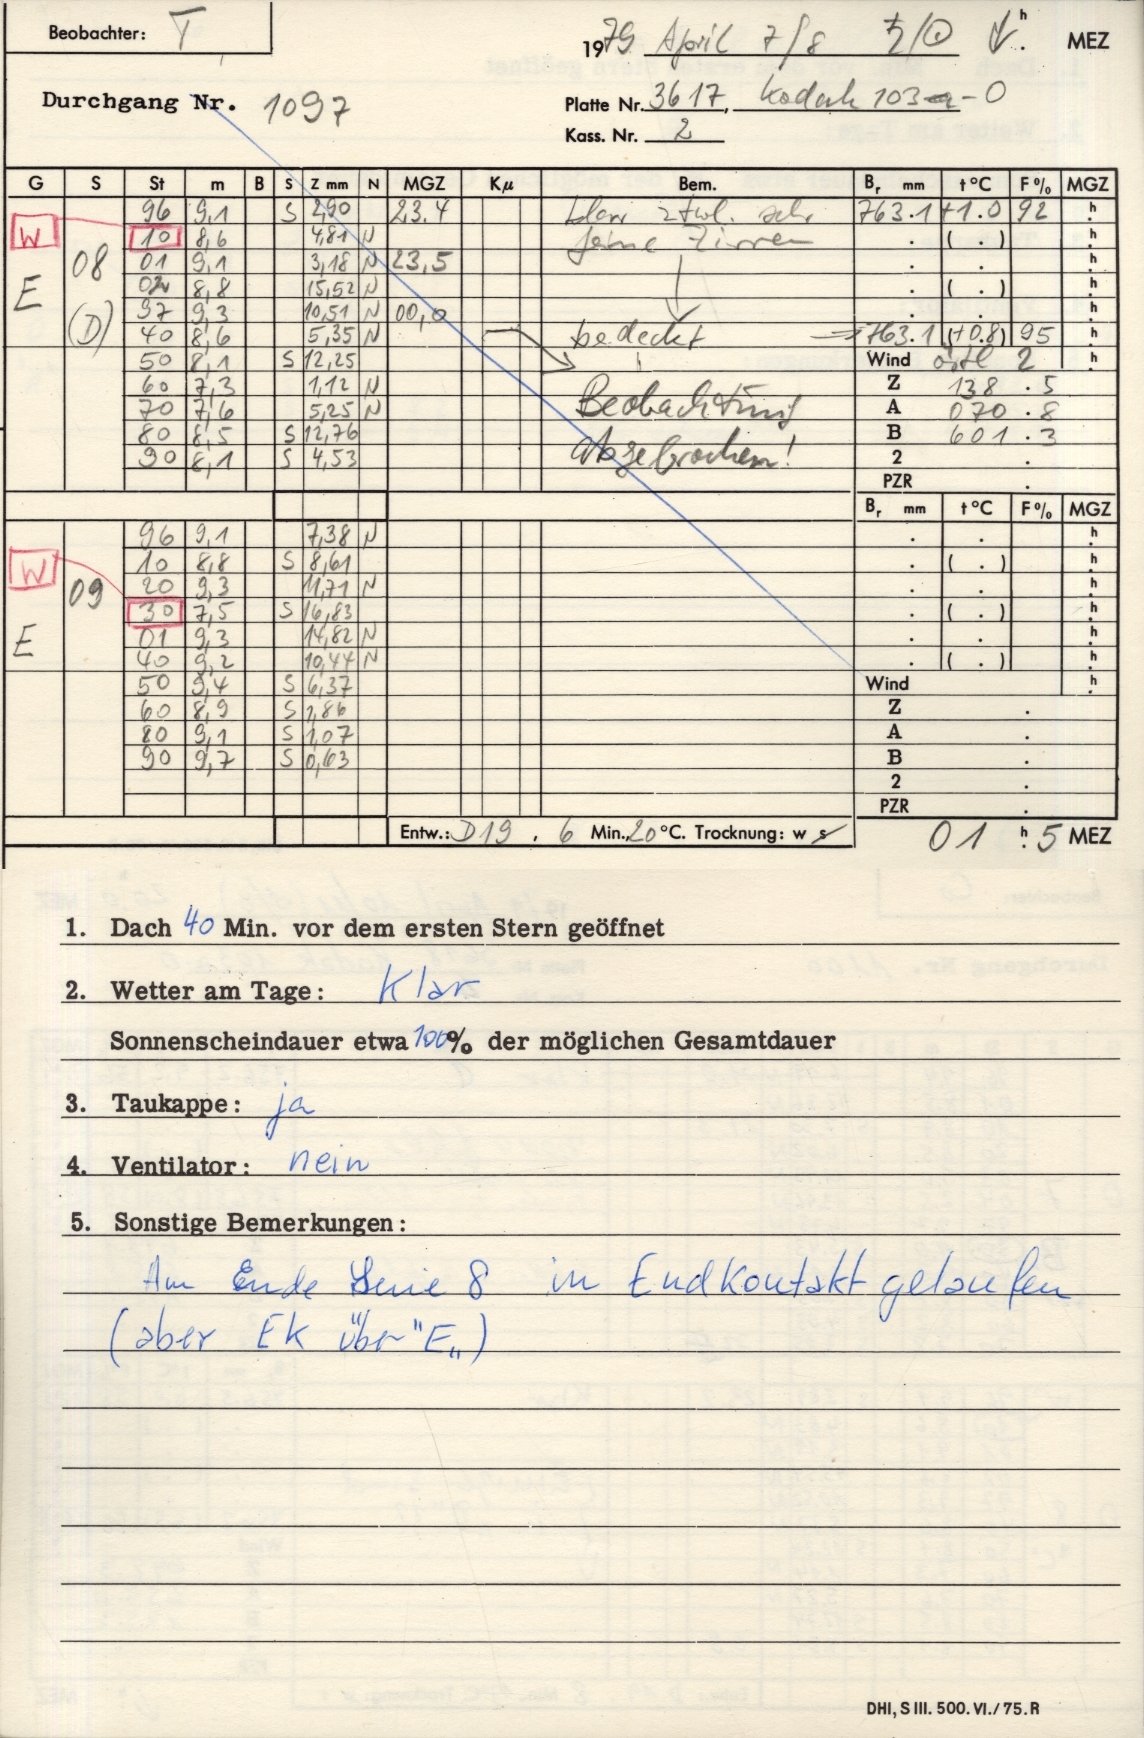 Beobachter: T
1979 April 7/8 ♄/☉ h MEZ
Durchgang Nr. 1097
Platte Nr. 3617, Kodak 103a-O
Kass. Nr. 2
G S St m B S Z mm N MGZ Kμ Bem. Br mm t°C F% MGZ
W 96 9,1 S 2,90 23.4 klar ztwl. sehr 763.1 +1.0 92 h
08 10 8,6 4,81 N feine Zirren . ( . ) h
01 9,1 3,18 N 23,5 . . h
E 02 8,8 15,52 N . ( . ) h
(D) 97 9,3 10,51 N 00,0 . . h
40 8,6 5,35 N bedeckt 763.1 (+0.8) 95 h
50 8,1 S 12,25 Wind östl 2 h
60 7,3 1,12 N Z 138.5
70 7,6 5,25 N Beobachtung A 070.8
80 8,5 S 12,76 B 601.3
90 8,1 S 4,53 abgebrochen! 2 .
PZR .
Br mm t°C F% MGZ
96 9,1 7,38 N . . h
W 10 8,8 S 8,61 . ( . ) h
09 20 9,3 11,71 N . . h
30 7,5 S 16,83 . ( . ) h
E 01 9,3 14,82 N . . h
40 9,2 10,44 N . ( . ) h
50 9,4 S 6,37 Wind h
60 8,9 S 1,86 Z .
80 9,1 S 1,07 A .
90 9,7 S 0,63 B .
2 .
PZR .
Entw.: D19, 6 Min., 20°C. Trocknung: w s 01 h.5 MEZ
1. Dach 40 Min. vor dem ersten Stern geöffnet
2. Wetter am Tage: Klar
Sonnenscheindauer etwa 100% der möglichen Gesamtdauer
3. Taukappe: ja
4. Ventilator: nein
5. Sonstige Bemerkungen:
Am Ende Serie 8 in Endkontakt gelaufen
(aber EK über "E„)
DHI, S III. 500. VI./75. R